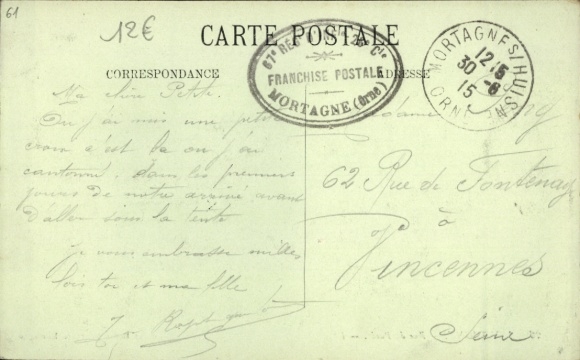 61
12€
CARTE POSTALE
CORRESPONDANCE
ADRESSE
67e 29 Cie
FRANCHISE POSTALE
MORTAGNE (Orne)
MORTAGNE S/HUISNE
12 15
30 -6
15
ORNE
Ma chère Petite
Ou j'ai mis une petite
croix c'est la ou j'ai
cantonné dans les premiers
jours de notre arrivé avant
D'aller sous la tente
Je vous embrasse mille
fois toi et ma fille
Madame
62 Rue de Fontenay
à
Vincennes
Seine